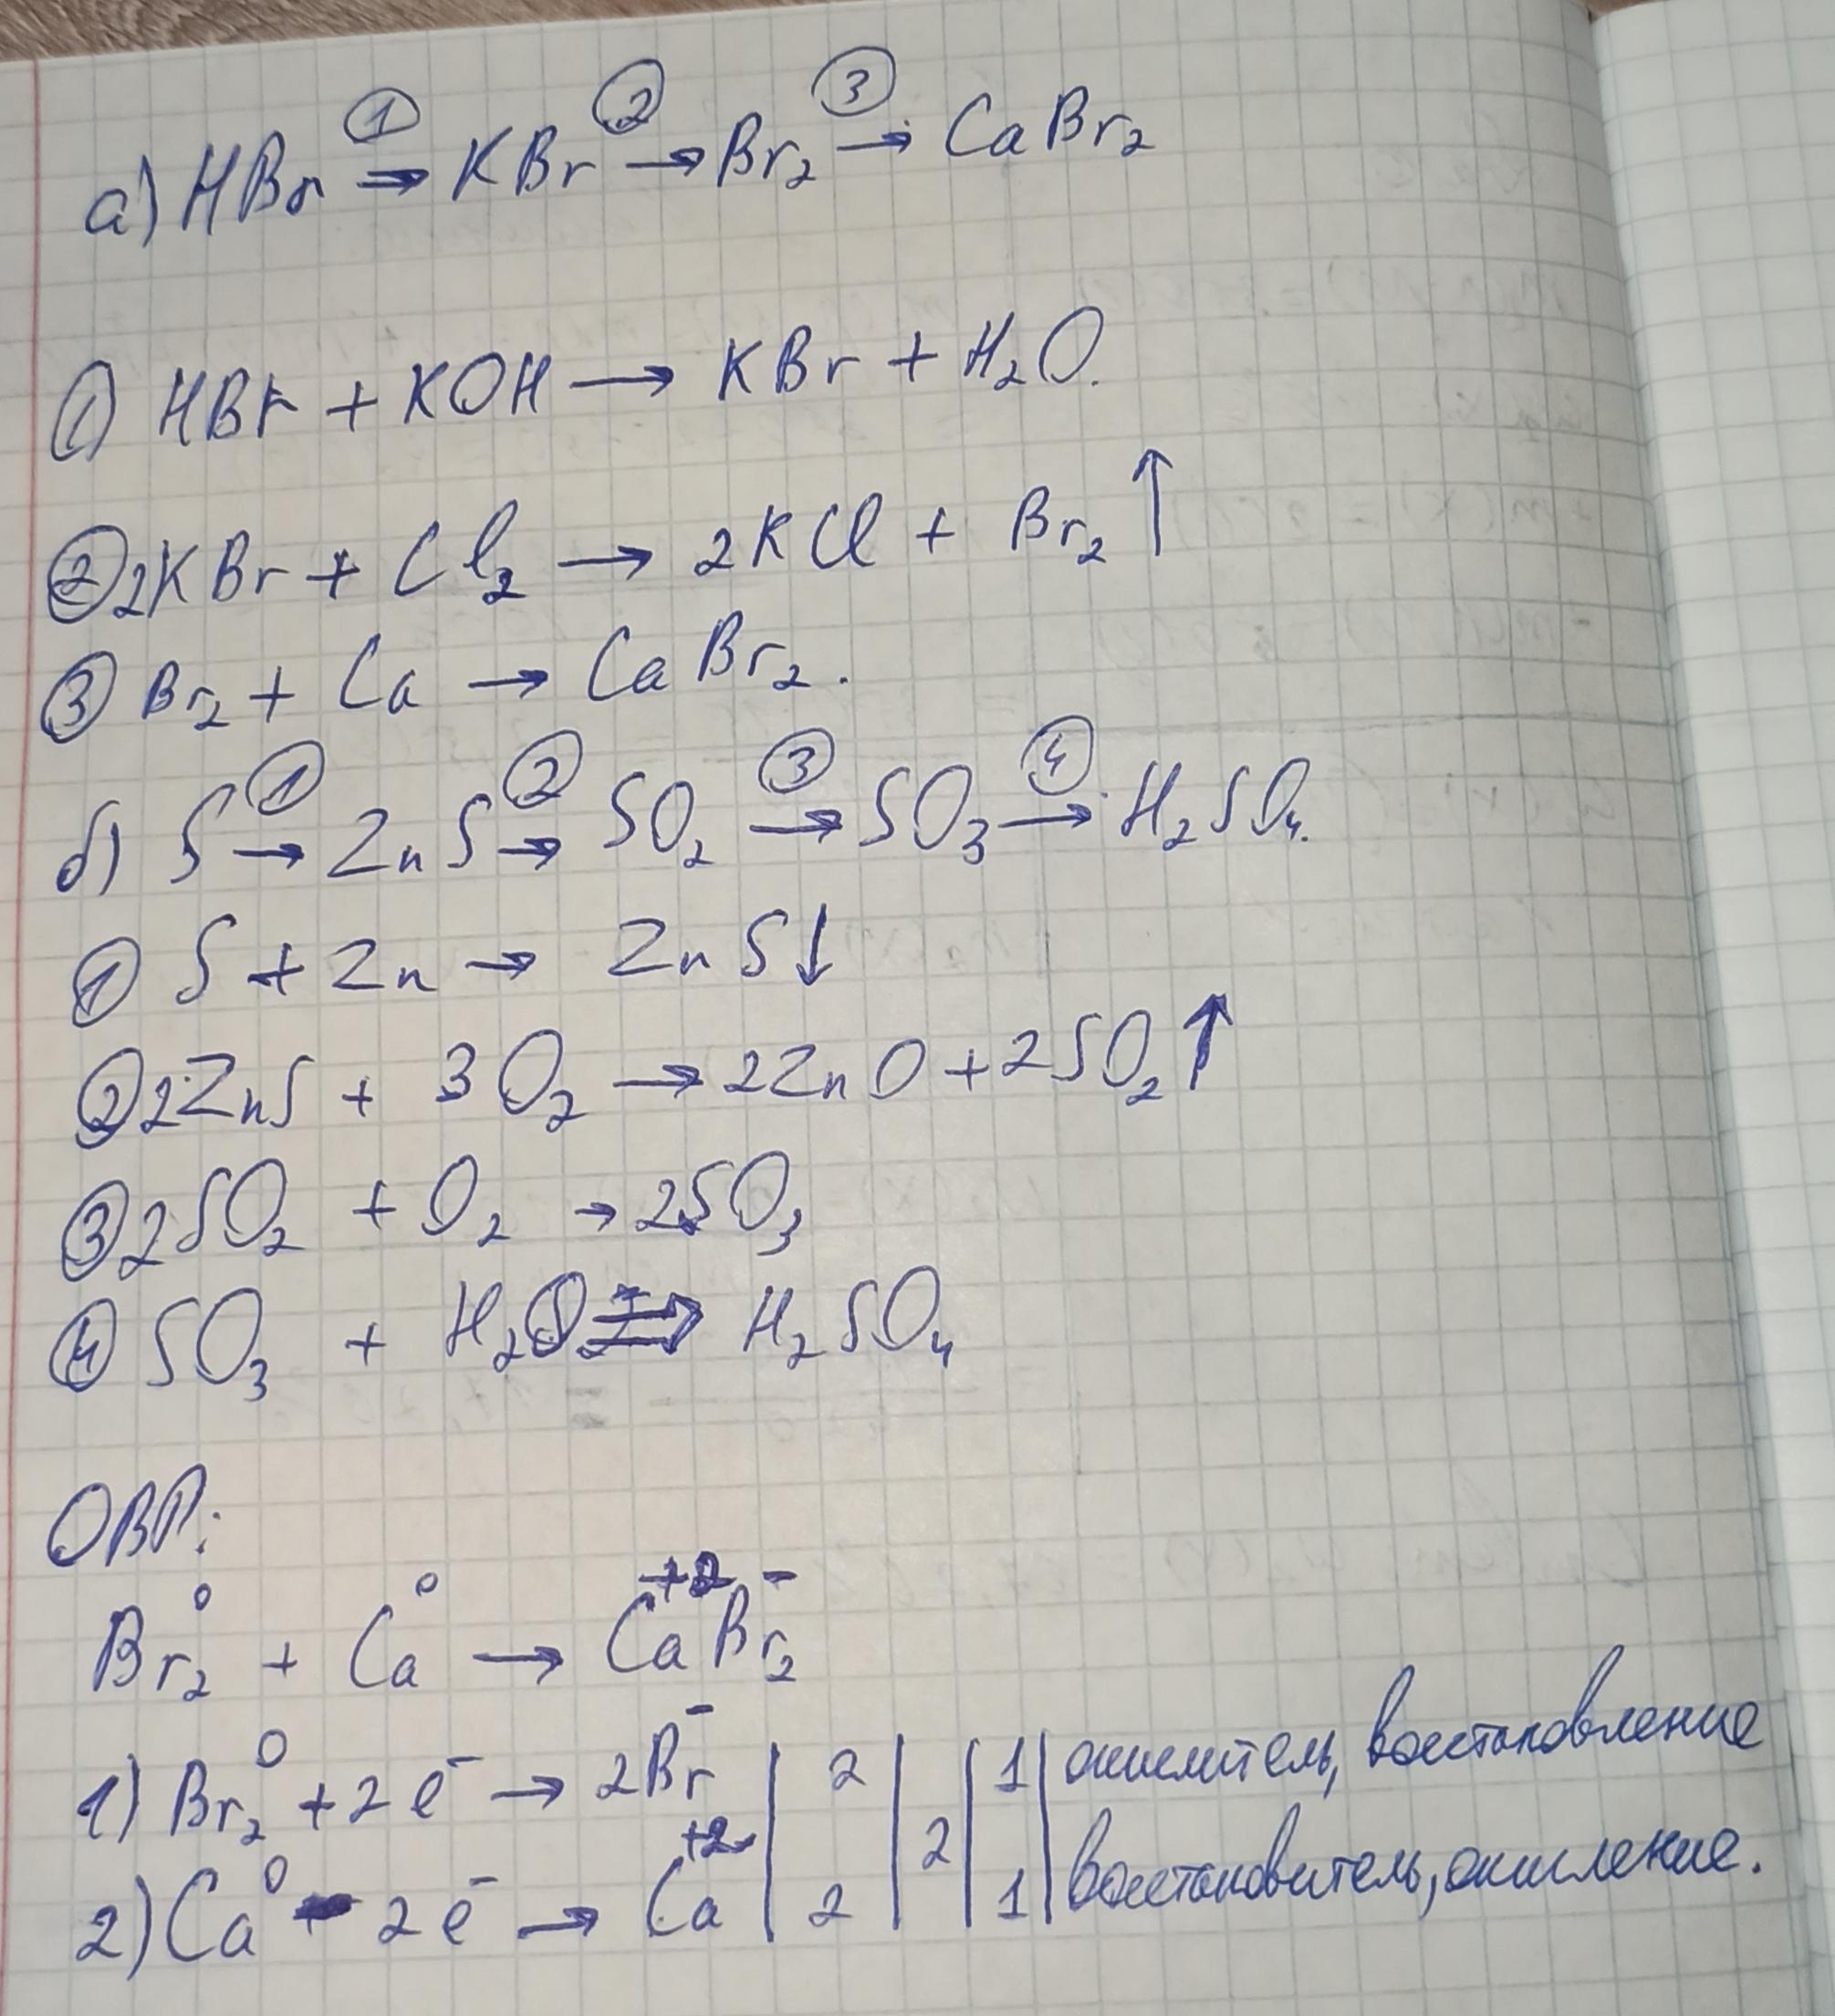 а) HBr ①→ KBr ②→ Br₂ ③→ CaBr₂
① HBr + KOH → KBr + H₂O.
② 2KBr + Cl₂ → 2KCl + Br₂↑
③ Br₂ + Ca → CaBr₂.
б) S ①→ ZnS ②→ SO₂ ③→ SO₃ ④→ H₂SO₄.
① S + Zn → ZnS↓
② 2ZnS + 3O₂ → 2ZnO + 2SO₂↑
③ 2SO₂ + O₂ → 2SO₃
④ SO₃ + H₂O → H₂SO₄
ОВР:
Br₂⁰ + Ca⁰ → Ca⁺²Br₂⁻
1) Br₂⁰ + 2e⁻ → 2Br⁻ | 2 | | 1 | окислитель, восстановление
2) Ca⁰ - 2e⁻ → Ca⁺² | 2 | 2 | 1 | восстановитель, окисление.